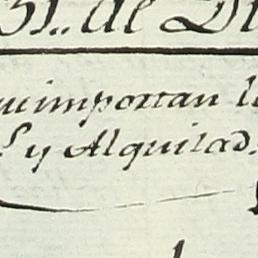 31.. de Di
uimportan l
s y Alquilad.